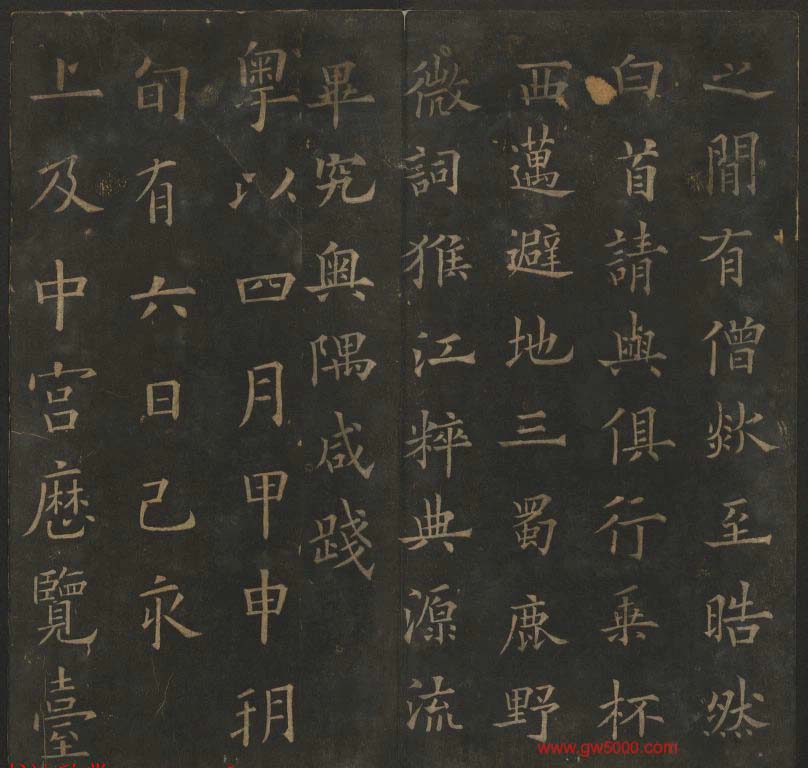 之閒有僧欻至晧然
白首請與俱行乗杯
西邁避地三蜀鹿野
微詞猴江粹典源流
畢究奥隅咸踐
粤以四月甲申朔
旬有六日己亥
上及中宫歷覽臺
www.gw5000.com